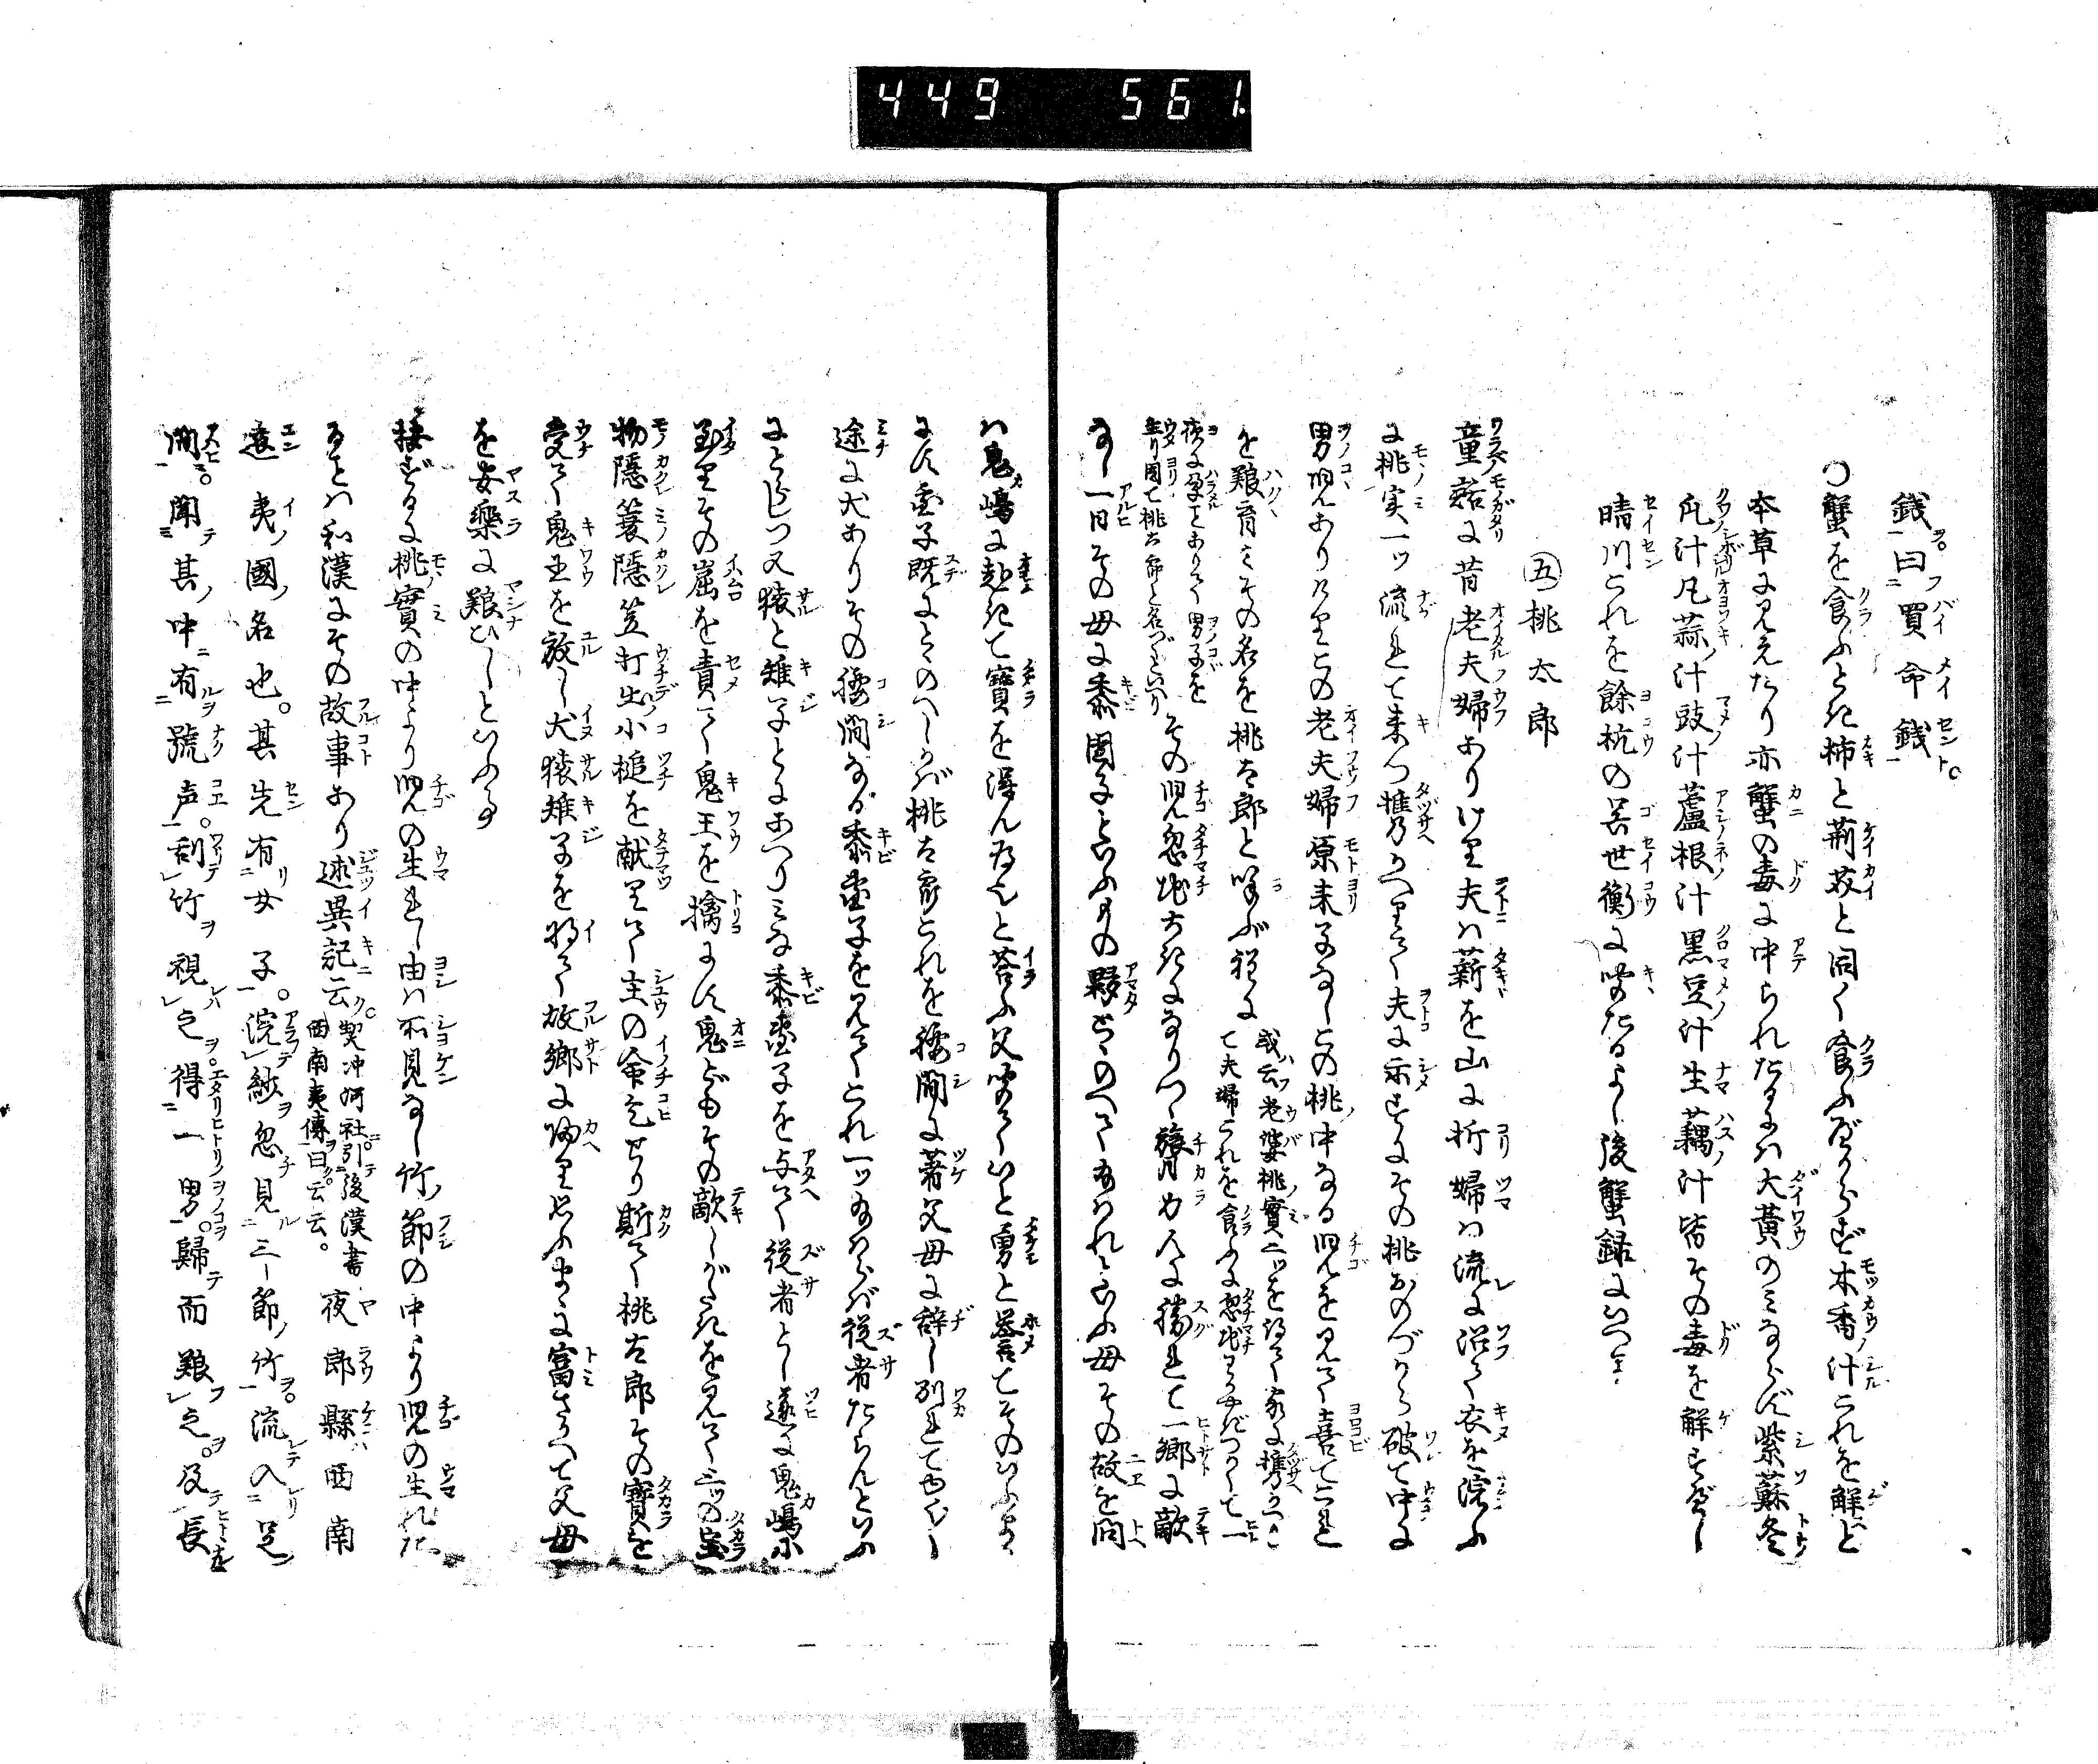 449 561
銭曰買命銭
○蟹を食ふとき柿と荊芥と同く食ふべからず木香汁これを解ど
本草に見えたり亦蟹の毒に中られたるには大黄のみならず紫蘇冬
瓜汁凡蒜汁豉汁蘆根汁黒豆汁生藕汁皆その毒を解すべし
晴川これを餘杭の呉世衡に聞たるよし後蟹録にいへり
五桃太郎
童話に昔老夫婦ありけり夫は薪を山に折婦は流に沿て衣を浣ふ
に桃実一ッ流れて来つ携りかへりて夫に示すにその桃おのづから破て中に
男児ありけりこの老夫婦原来子なしこの桃中なる児を見て喜てこれ
を艱育みその名を桃太郎と喚ぶ程に
或云老婆桃實二ッを得て家に携かへり
て夫婦これを食ふに忽地わかやぎつくて一
夜に孕ことありて男子を
生り因て桃太郎と名づくといへり
その児忽地大きになりつゝ膂力人に勝れて一郷に敵
なし一日その母に黍團子といふもの夥とゝのへて給はれといふ母その故を問
は鬼嶋に赴きて寶を得ん為也と答ふ父聞ていと勇と誉てそのいふまゝ
にす團子既にとゝのへしかば桃太郎これを腰間に著父母に辞し別れて出ぬ
途に犬ありその腰間なる黍團子を見てこれ一ッ給はらば従者たらんといふ
にとらしつ又猿と雉子とにあへりみな黍團子を与て従者とし遂に鬼嶋に
到りその崛を責て鬼王を擒にす鬼どもその敵しがたきを見て三ッの寳
物隠簑隠笠打出小槌を献りて主の命乞せり斯て桃太郎その寶を
受て鬼王を放し犬猿雉子を将て故郷に帰り思ふまゝに富さかへて父母
を安樂に艱ひしといふ事
按ずるに桃實の中より児の生れし由は所見なし竹節の中より児の生れた
ることは和漢にその故事あり述異記云
契冲河社引後漢書
西南夷傳曰云云
夜郎縣西南
遠夷國名也其先有女子浣紗忽見三節竹流入足
間聞其中有號声剖竹視之得一男歸而艱之及長